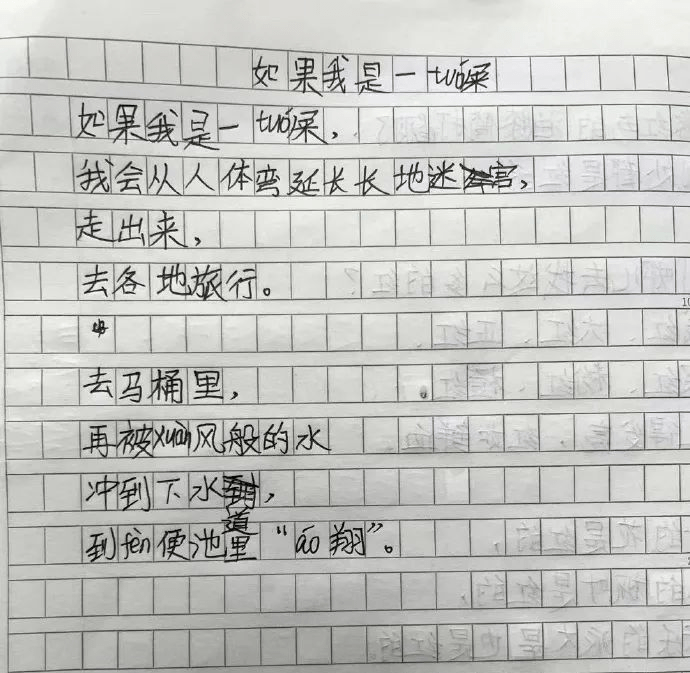 如果我是一tuó屎
如果我是一tuó屎，
我会从人体弯延长长地迷宫，
走出来，
去各地旅行。
去马桶里，
再被xuàn风般的水
冲到下水道，
到fèn便池里“áo翔”。